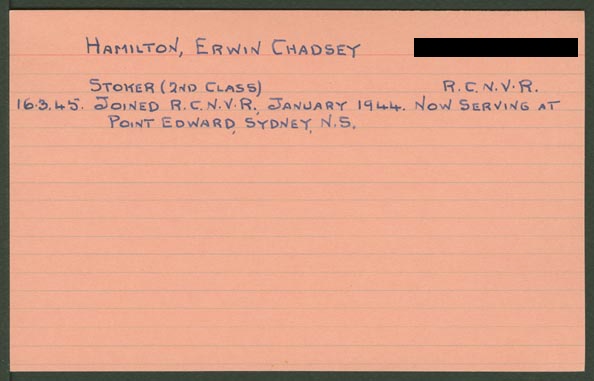 HAMILTON, ERWIN CHADSEY
STOKER (2ND CLASS) R.C.N.V.R.
16.3.45. JOINED R.C.N.V.R, JANUARY 1944. NOW SERVING AT
POINT EDWARD, SYDNEY, N.S.